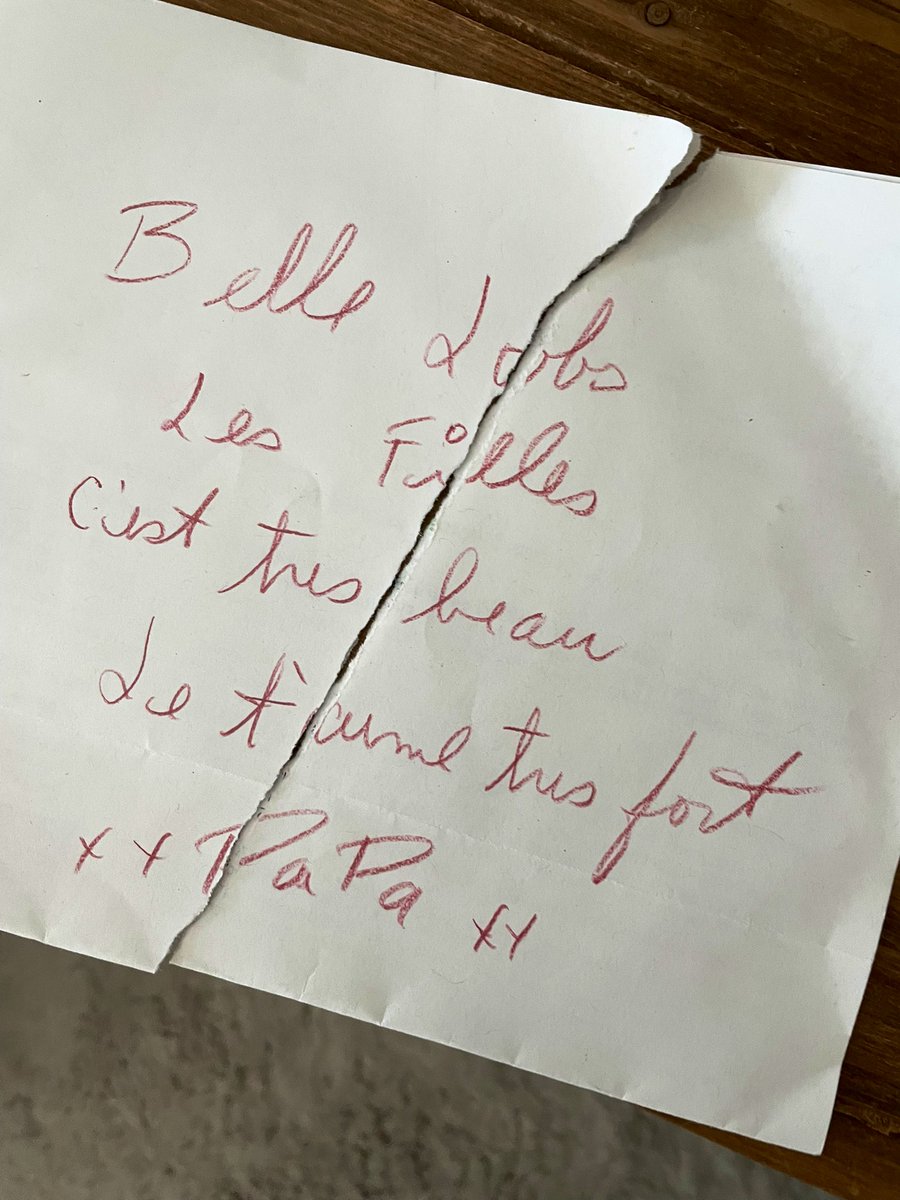 Belle Jobs
Les Filles
C'est tres beau
Je t'aime tres fort
x x PaPa xx